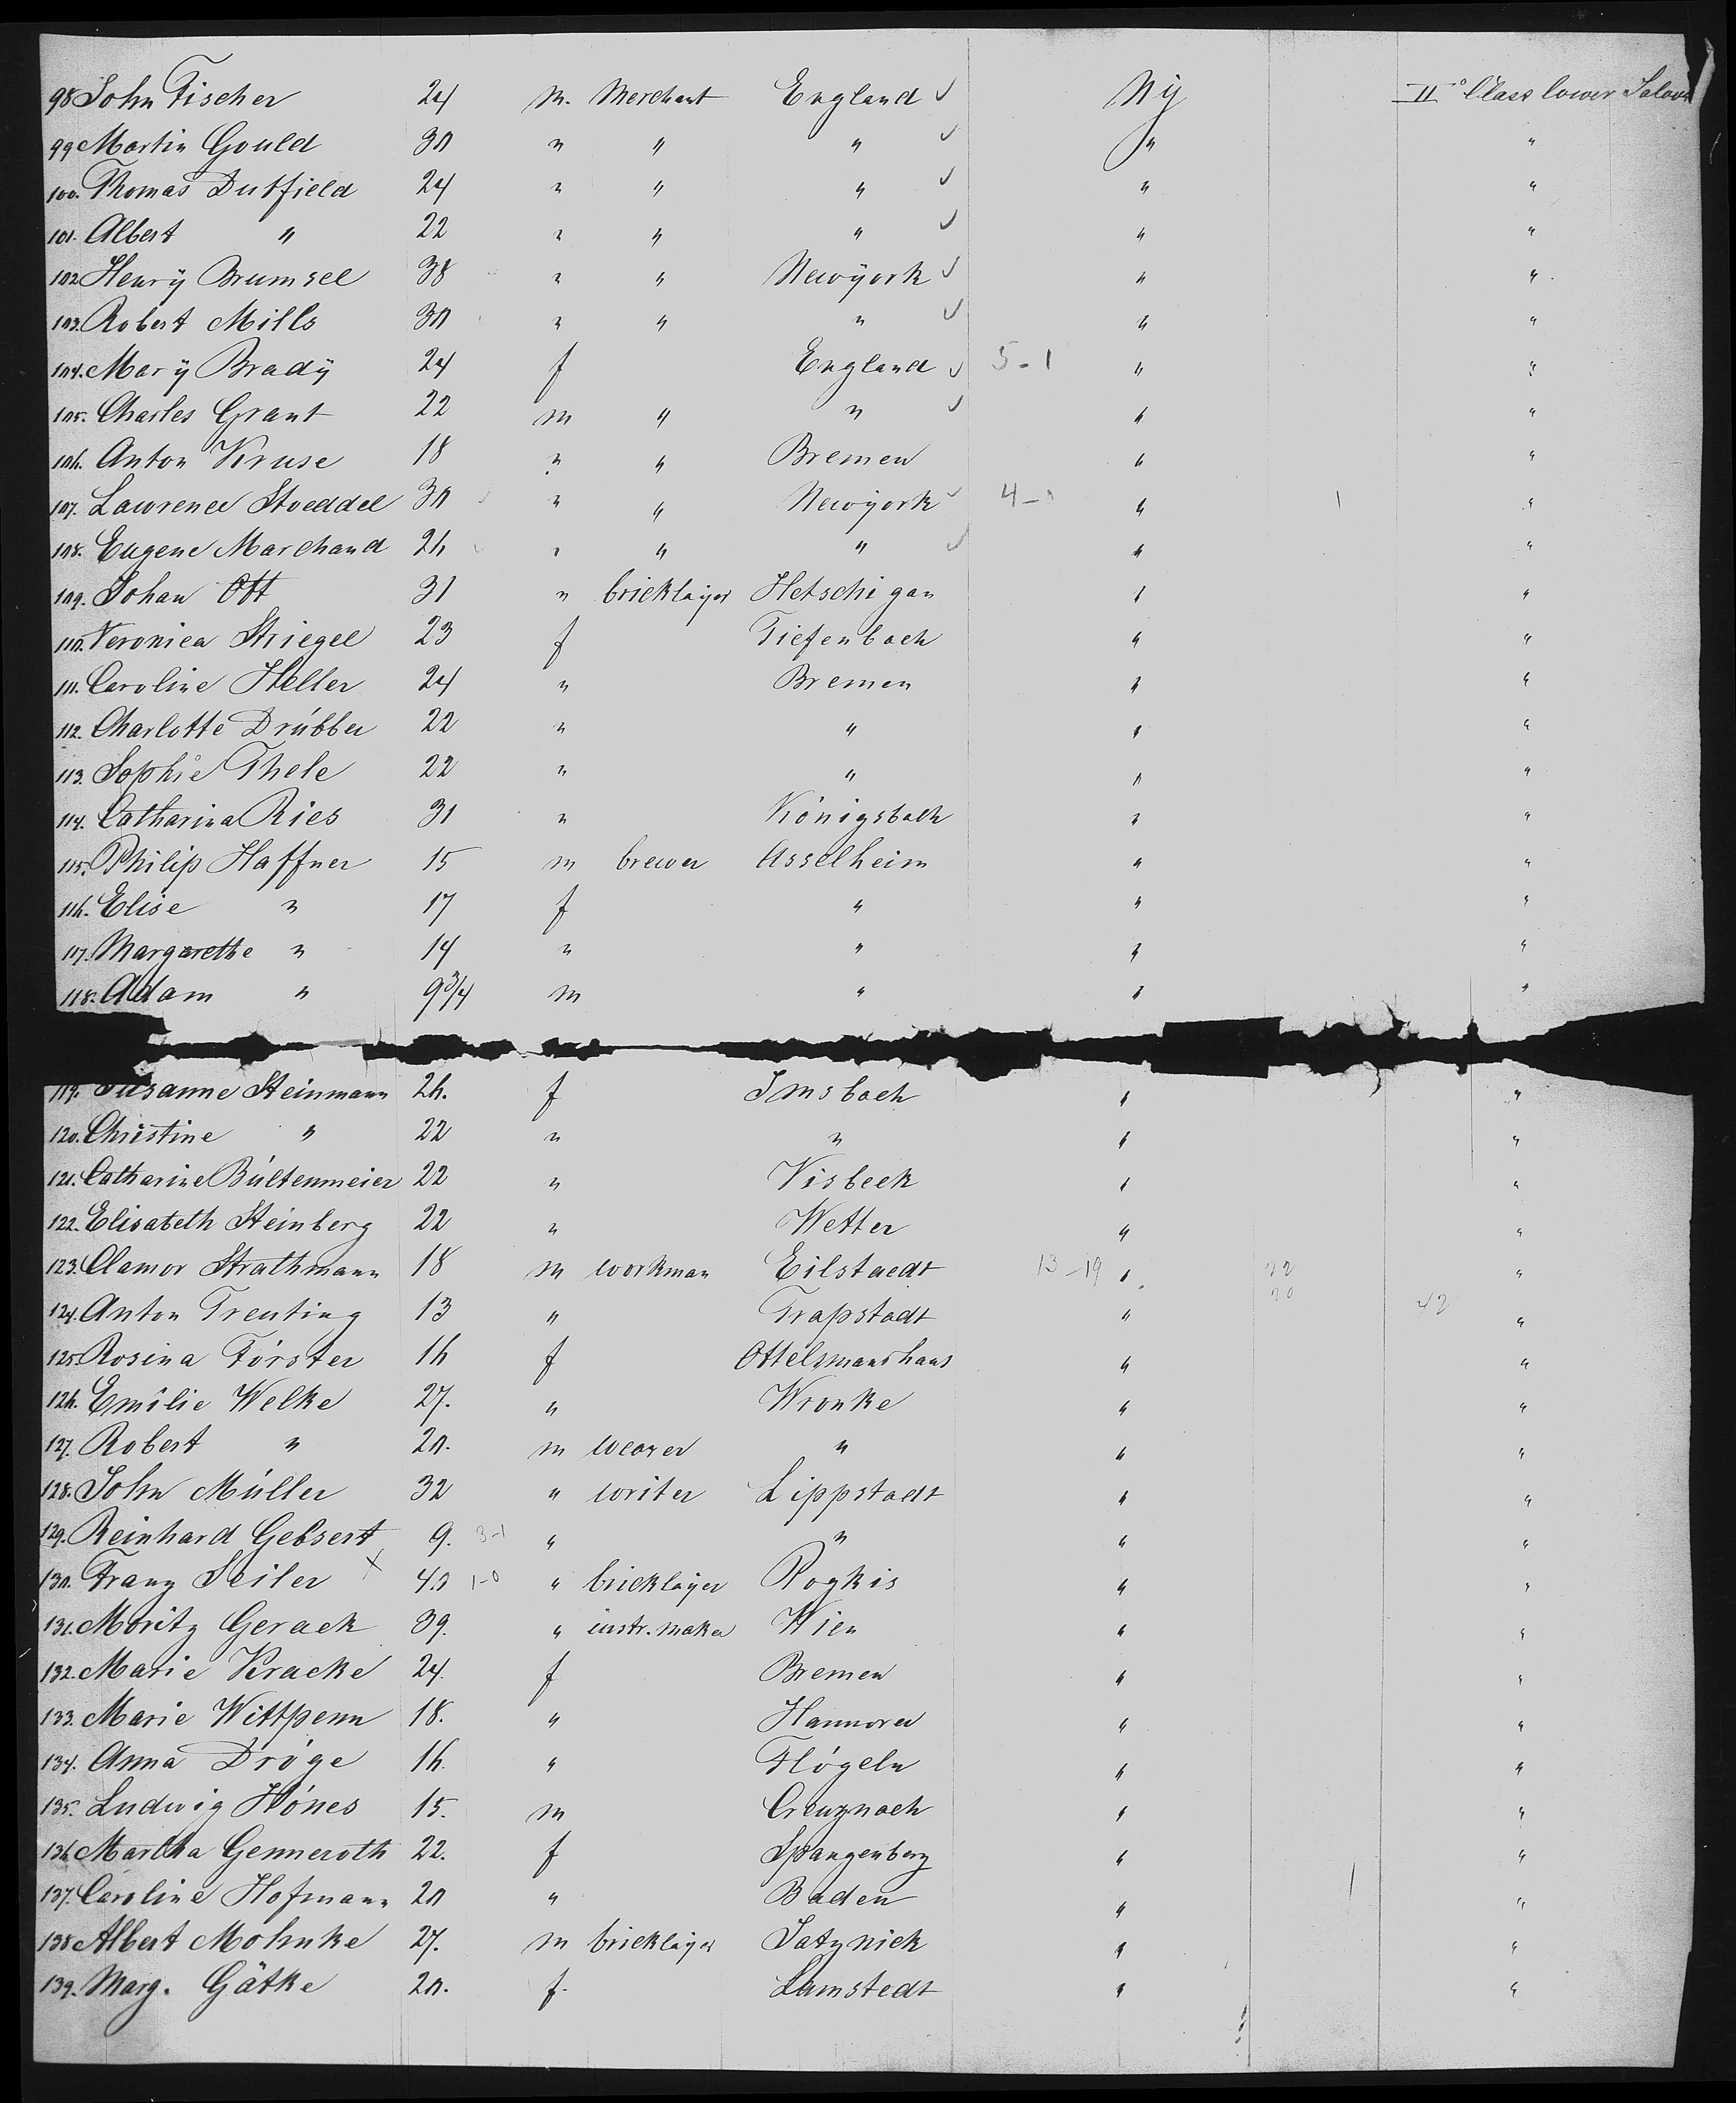 98 John Fischer 24 m. Merchant England ✓ Ny II° Class lower Saloon
99 Martin Gould 30 " " " ✓ " "
100. Thomas Dutfield 24 " " " ✓ " "
101. Albert " 22 " " " ✓ " "
102 Henry Brumsel 38 " " Newyork ✓ " "
103. Robert Mills 30 " " " ✓ " "
104. Mary Brady 24 f England ✓ 5-1 " "
105. Charles Grant 22 m " " ✓ " "
106. Anton Kruse 18 " " Bremen " "
107. Lawrence Stoeddel 30 " " Newyork ✓ " 1 "
108. Eugene Marchand 26 " " " ✓ " "
109. Johan Ott 31 " bricklayer Hetschigan " "
110. Veronica Striegel 23 f Tiefenbach " "
111. Caroline Heller 24 " Bremen " "
112. Charlotte Drübber 22 " " " "
113. Sophie Thele 22 " " " "
114. Catharina Ries 31 " Königsbach " "
115. Philip Haffner 15 m brewer Asselheim " "
116. Elise " 17 f " " "
117. Margarethe " 14 " " " "
118. Adam " 9 3/4 m " " "
119. Susanne Steinmann 26. f Imsbach " "
120. Christine " 22 " " " "
121. Catharine Bültenmeier 22 " Visbeck " "
122. Elisabeth Steinberg 22 " Wetter " "
123. Clamor Strathmann 18 m workman Eilstaedt 13-19 " 22 "
20 42
124. Anton Trenting 13 " Trapstadt " "
125. Rosina Förster 16 f Ottelsmanshaus " "
126. Emilie Welke 27. " Wronke " "
127. Robert " 20. m weaver " " "
128. John Müller 32 " writer Lippstadt " "
129. Reinhard Gebsert 9. 3-1 " " " "
130. Franz Seiler × 40 1-0 " bricklayer Rogkis " "
131. Moritz Gerack 39. " instr. maker Wien " "
132. Marie Kracke 24. f Bremen " "
133. Marie Wittpenn 18. " Hannover " "
134. Anna Dröge 16. " Flögeln " "
135. Ludwig Hönes 15. m Creuznach " "
136. Martha Genneroth 22. f Spangenberg " "
137. Caroline Hofmann 20 " Baden " "
138 Albert Mohnke 27. m bricklayer Satznick " "
139. Marg. Gätke 20. f. Lamstedt " "